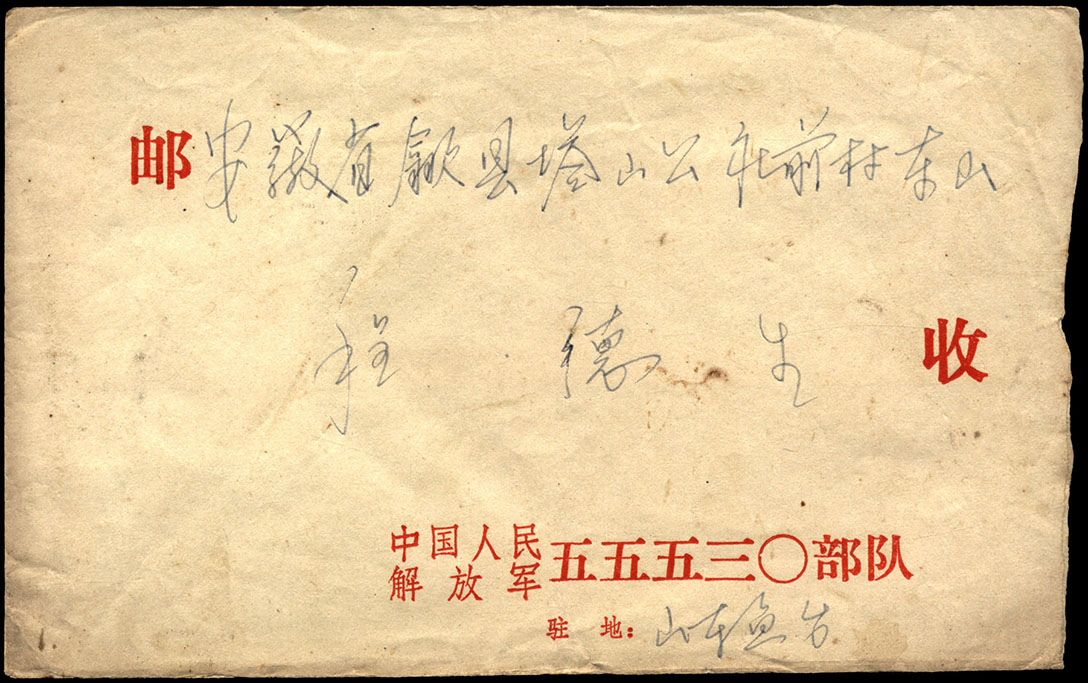 邮 安徽省歙县塔山公社前村东山
程 德 生 收
中国人民解放军 五五五三〇部队
驻 地：山东